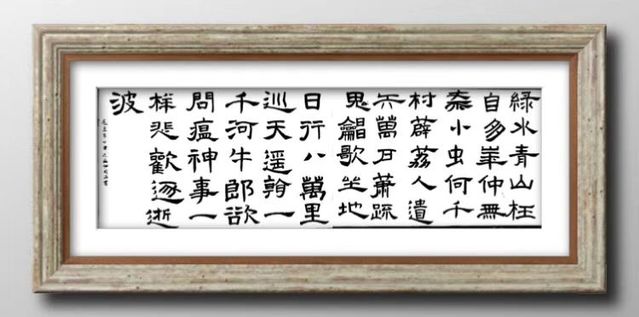 綠水青山枉
自多華佗無
奈小虫何千
村薜荔人遺
矢萬戶蕭疏
鬼唱歌坐地
日行八萬里
巡天遥看一
千河牛郎欲
問瘟神事一
樣悲歡逐逝
波